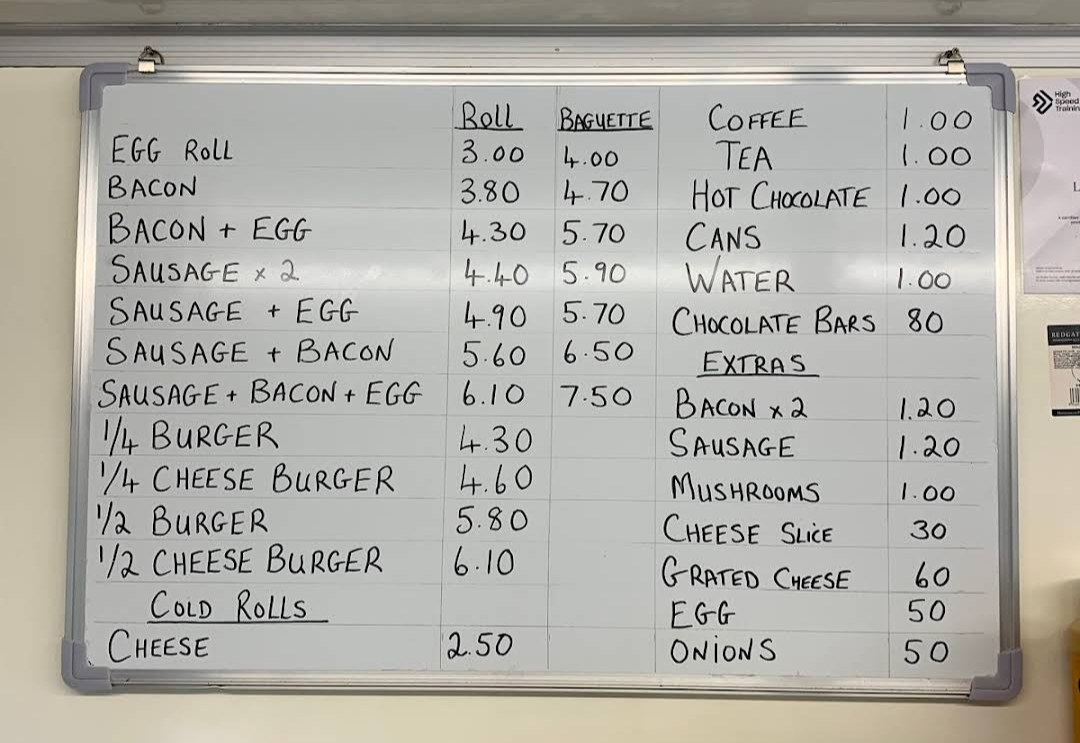 Roll BAGUETTE
EGG ROLL 3.00 4.00
BACON 3.80 4.70
BACON + EGG 4.30 5.70
SAUSAGE x 2 4.40 5.90
SAUSAGE + EGG 4.90 5.70
SAUSAGE + BACON 5.60 6.50
SAUSAGE + BACON + EGG 6.10 7.50
1/4 BURGER 4.30
1/4 CHEESE BURGER 4.60
1/2 BURGER 5.80
1/2 CHEESE BURGER 6.10
COLD ROLLS
CHEESE 2.50
COFFEE 1.00
TEA 1.00
HOT CHOCOLATE 1.00
CANS 1.20
WATER 1.00
CHOCOLATE BARS 80
EXTRAS
BACON x 2 1.20
SAUSAGE 1.20
MUSHROOMS 1.00
CHEESE SLICE 30
GRATED CHEESE 60
EGG 50
ONIONS 50
High
Speed
Trainin
REDGAT